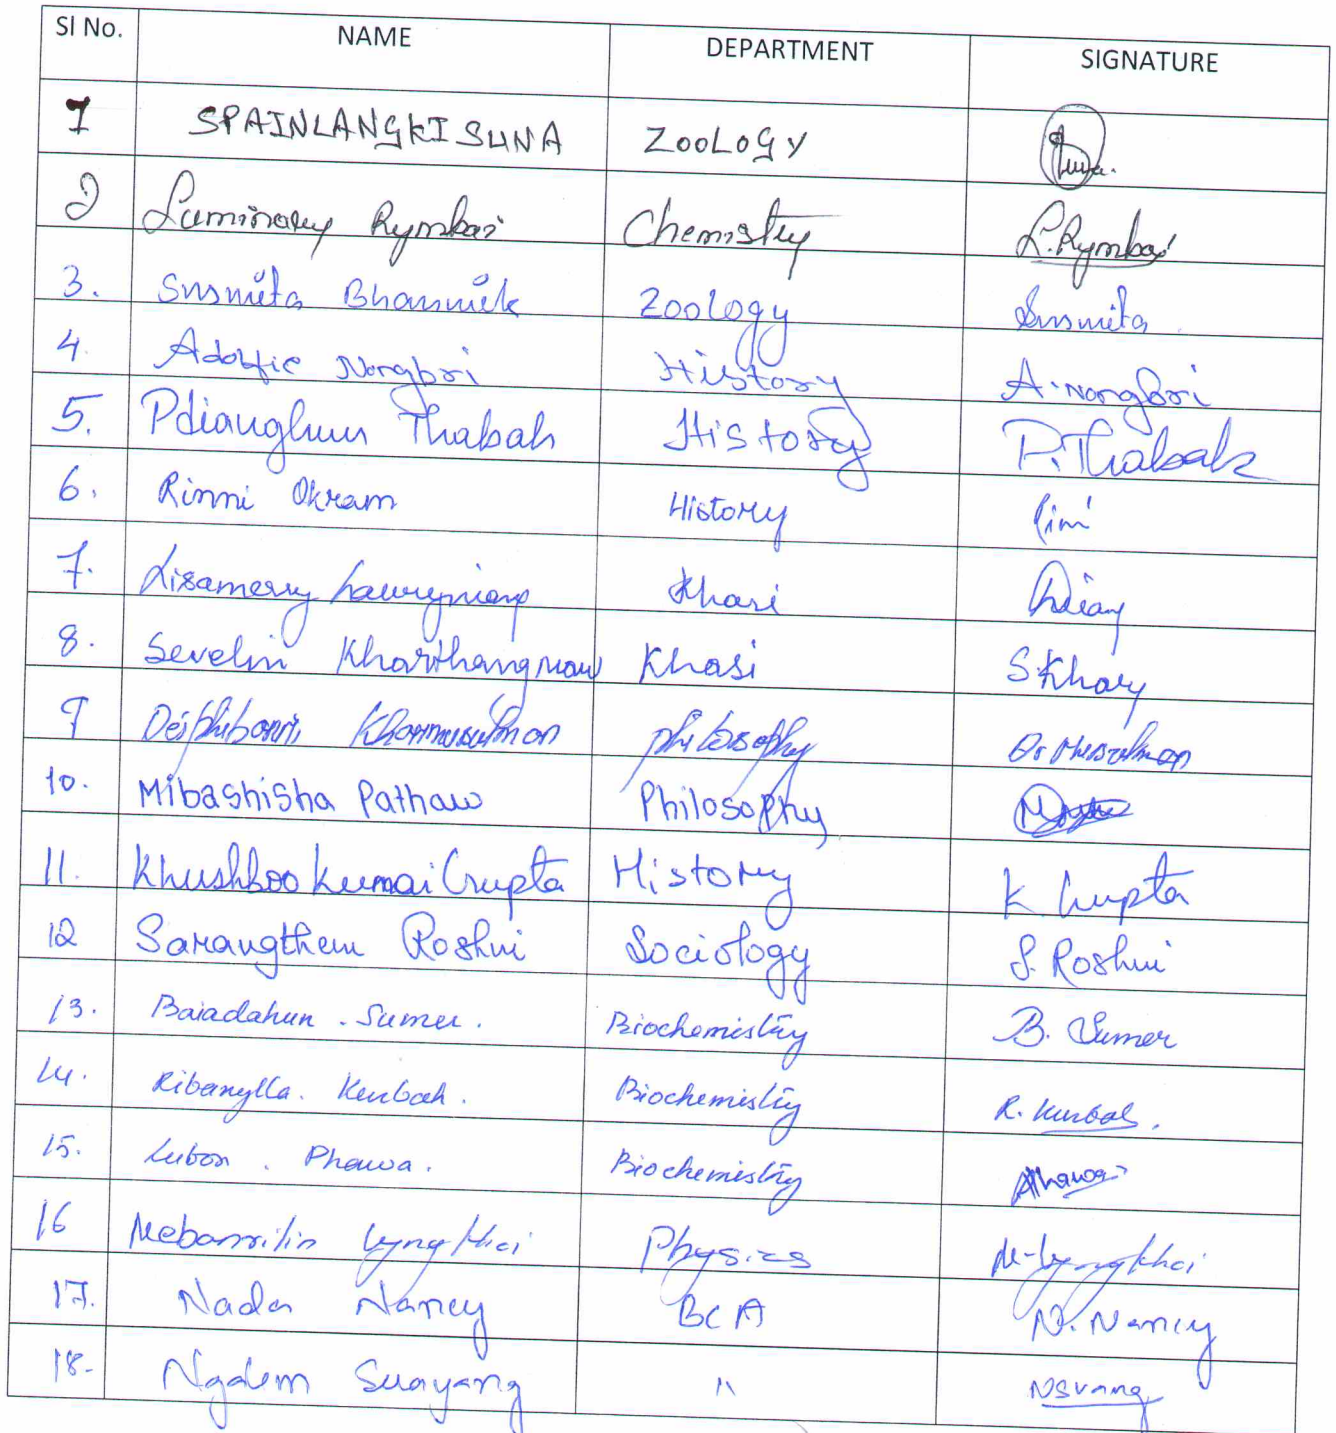 Sl No. NAME DEPARTMENT SIGNATURE
1 SPAINLANGKI SUNA ZOOLOGY
2 Luminary Rymbai Chemistry L.Rymbai
3. Susmita Bhaumik Zoology Susmita
4. Adolfie Nongbri History A. Nongbri
5. Pdianghun Thabah History P. Thabah
6. Rinni Okram History
7. Lisamerry Khasi
8. Sevelin Kharthangmaw Khasi S.Khar
9 Philosophy
10. Mibashisha Pathaw Philosophy
11. Khushboo Kumai Gupta History K. Gupta
12 Sarangthem Roshni Sociology S. Roshni
13. Baiadahun . Sumer . Biochemistry B. Sumer
14. Ribanylla . Kurbah . Biochemistry R. Kurbah .
15. Lubon . Phawa . Biochemistry
16 Mebanrilin Lyngkhoi Physics M-Lyngkhoi
17. Nada Nancy BCA N. Nancy
18- Ngalem Suayang "